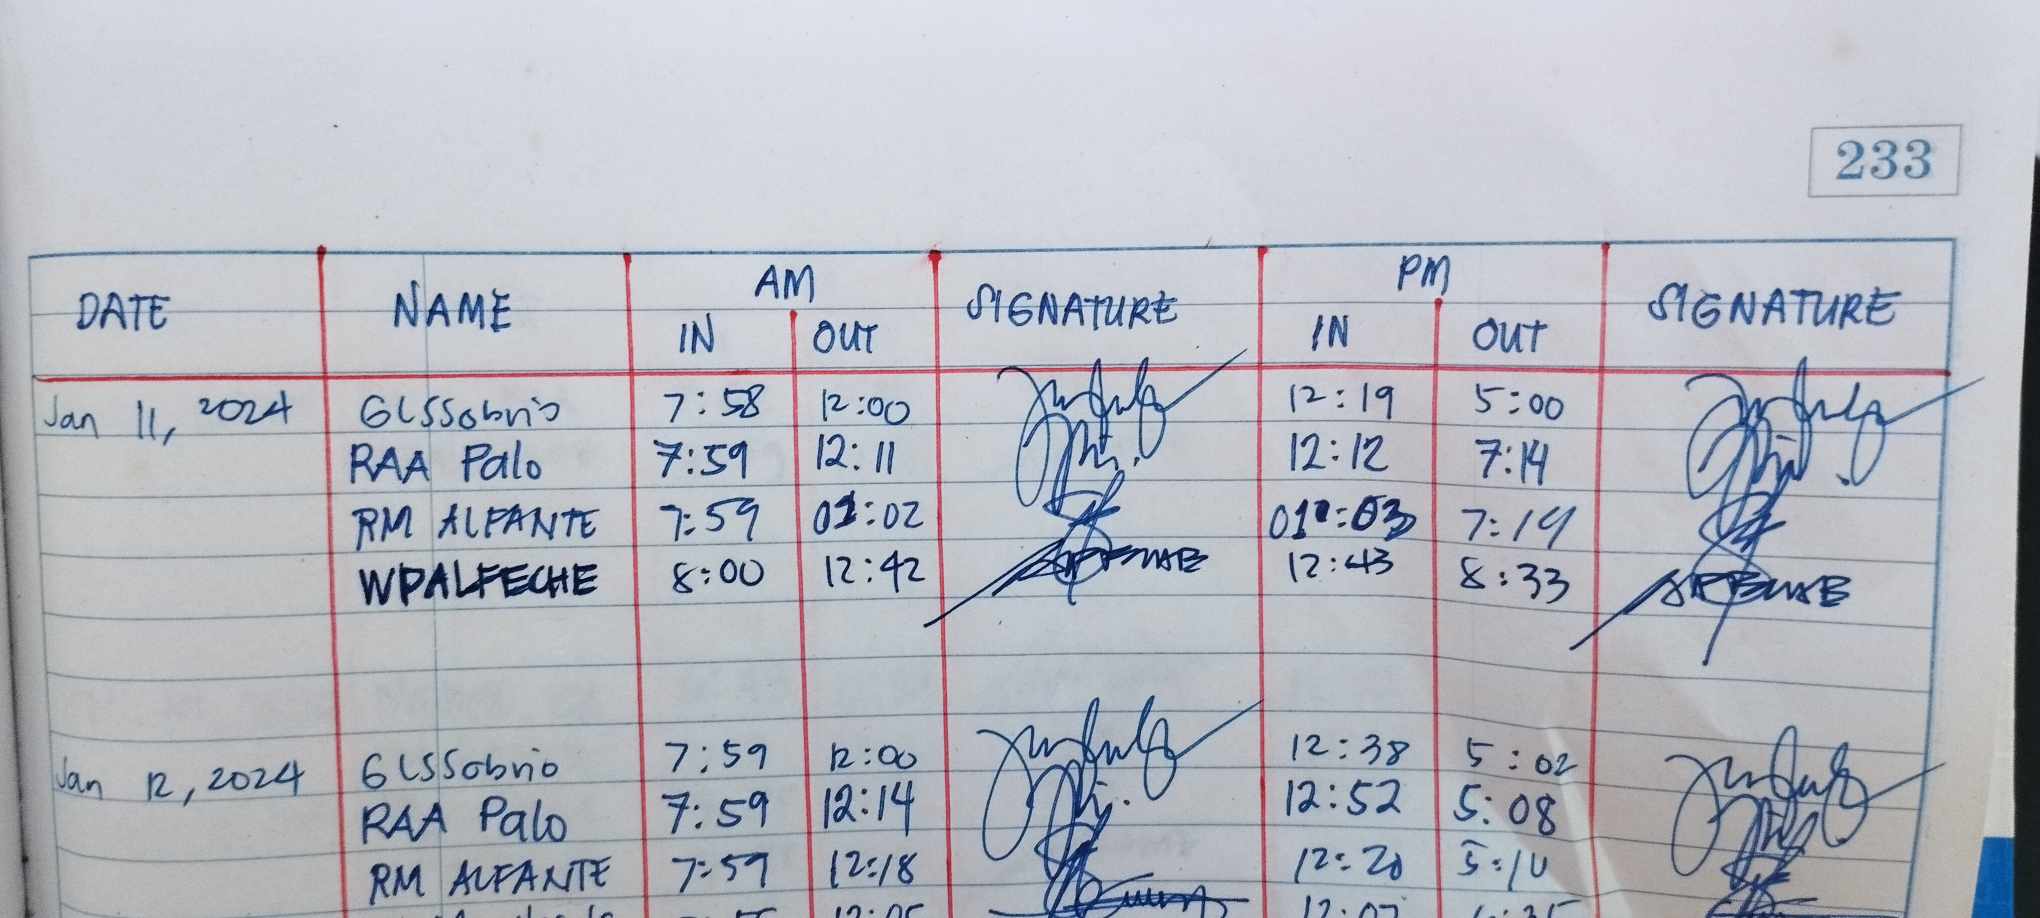 233
DATE NAME AM SIGNATURE PM SIGNATURE
IN OUT IN OUT
Jan 11, 2024 GLSSobrio 7:58 12:00 12:19 5:00
RAA Palo 7:59 12:11 12:12 7:14
RM ALFANTE 7:59 01:02 01:03 7:19
WPALFECHE 8:00 12:42 12:43 8:33
Jan 12, 2024 GLSSobrio 7:59 12:00 12:38 5:02
RAA Palo 7:59 12:14 12:52 5:08
RM ALFANTE 7:59 12:18 12:20 5:10